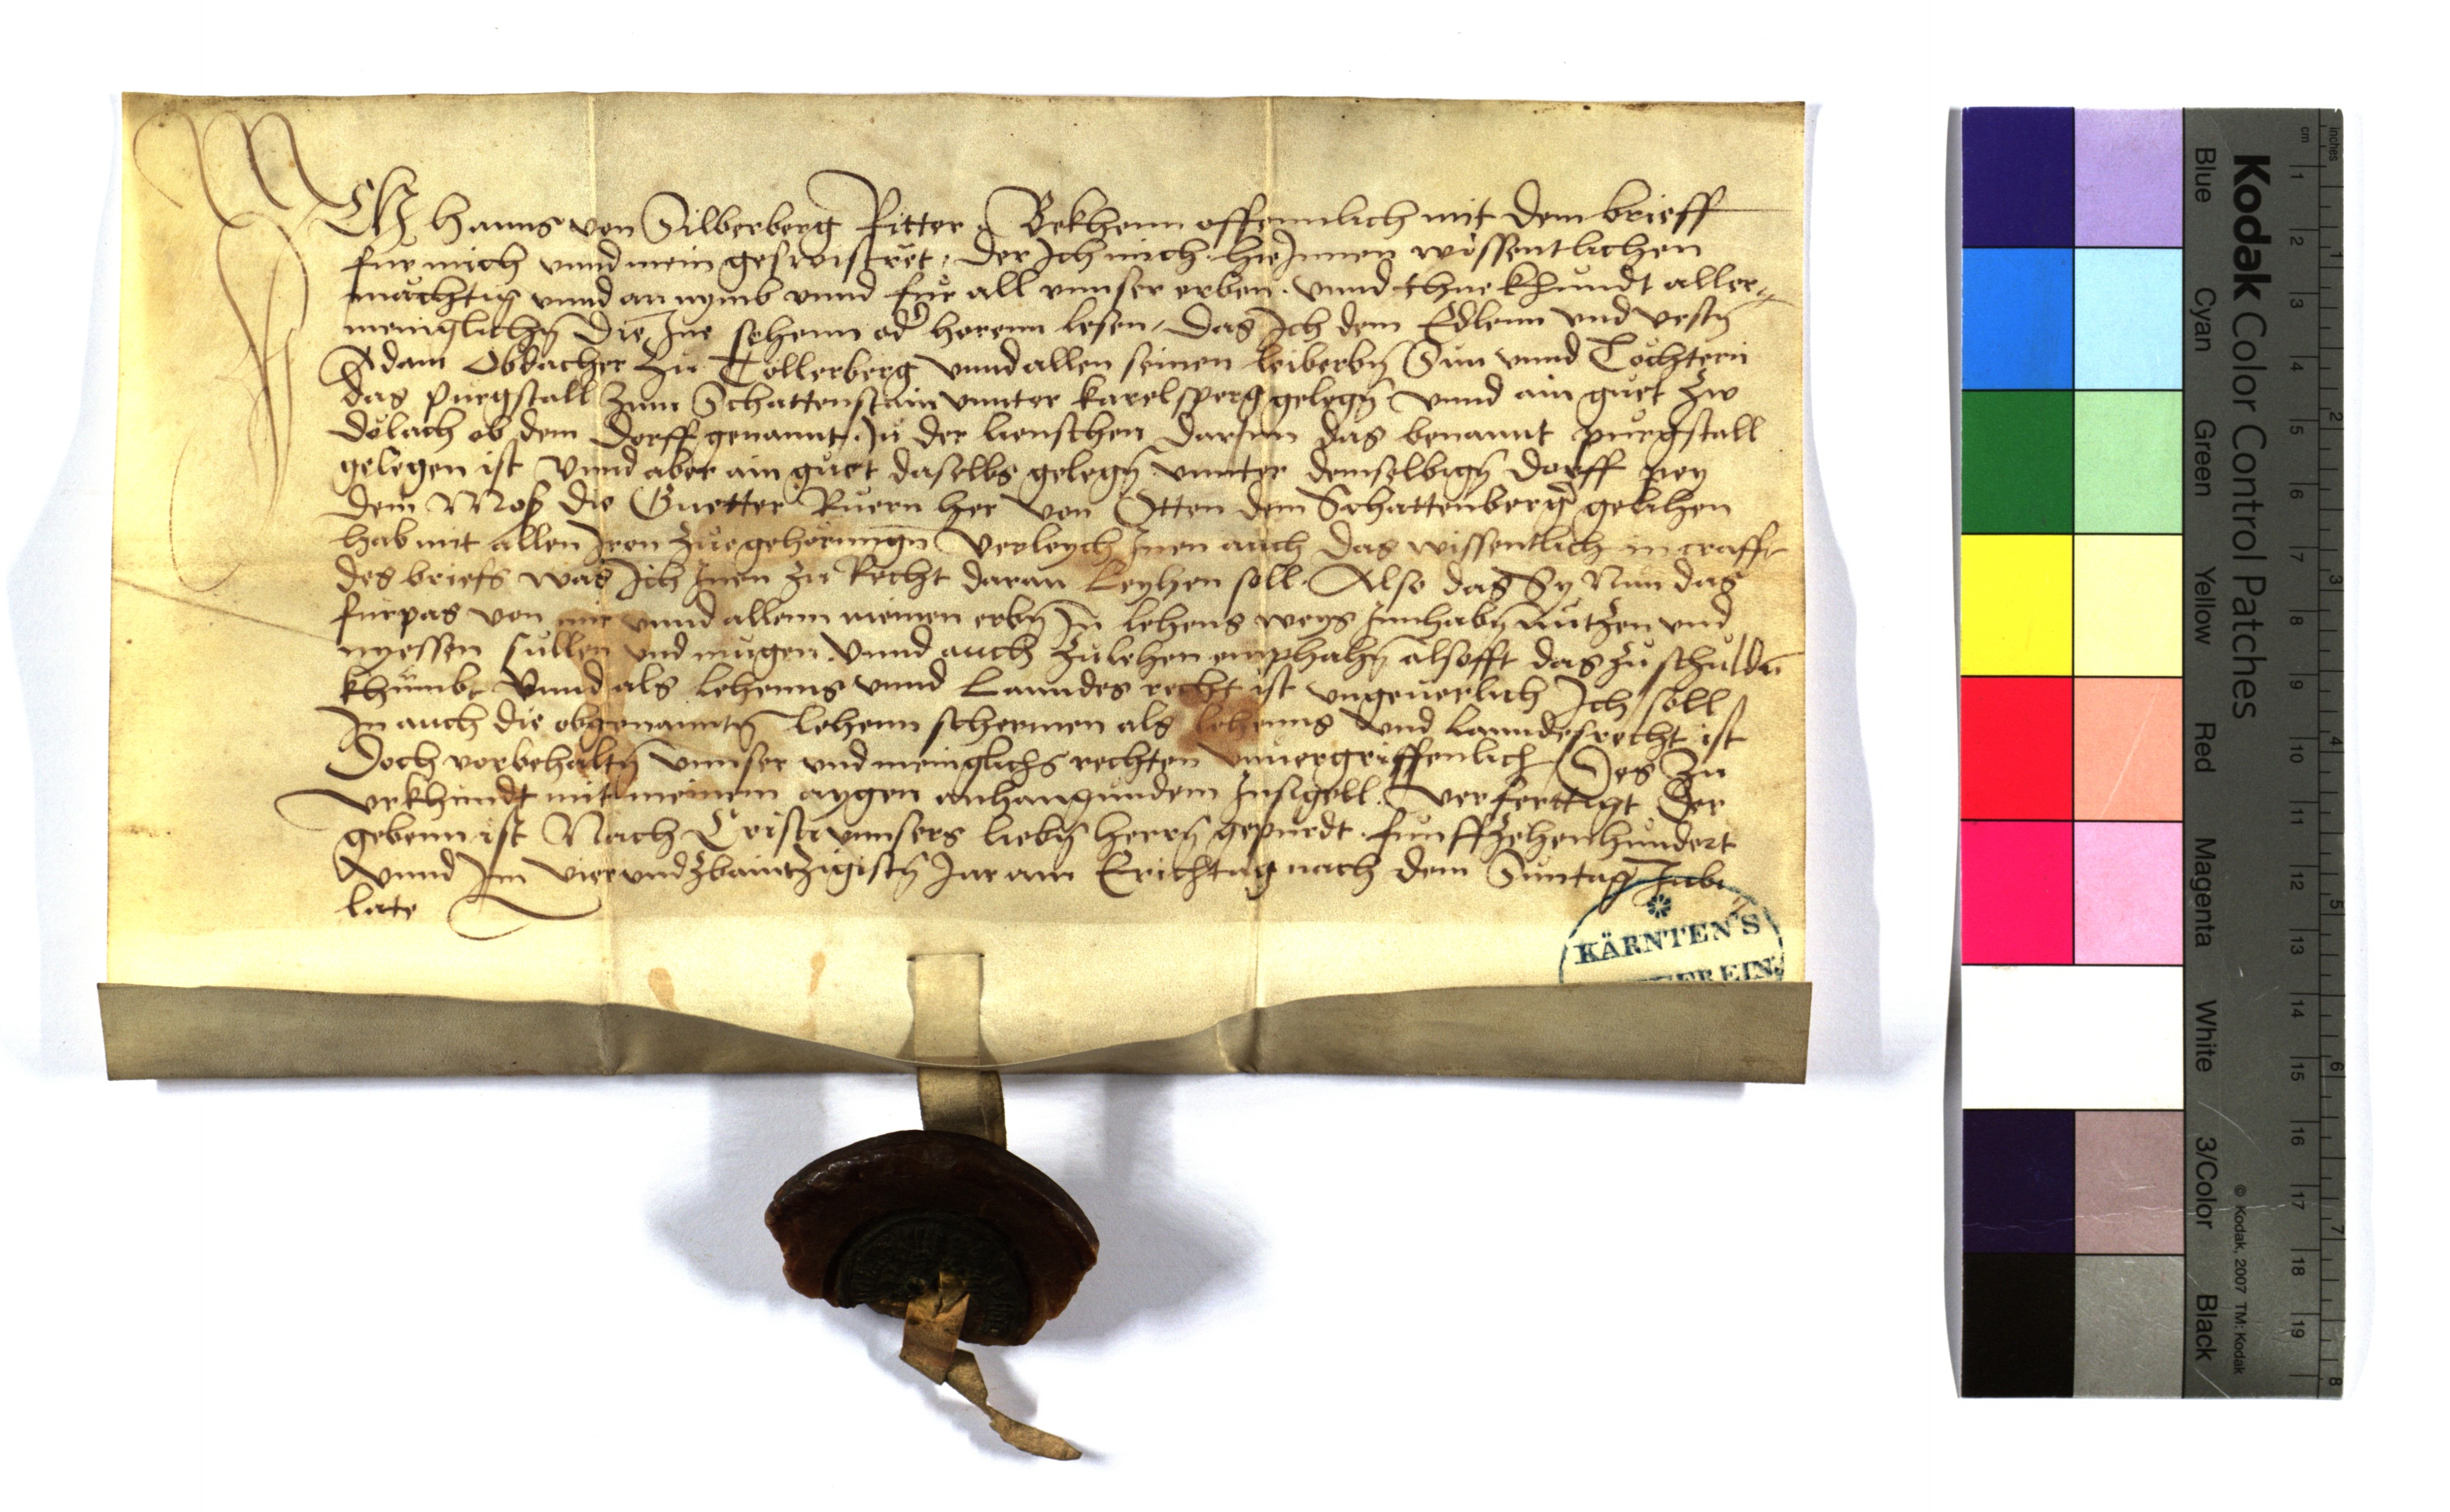 ICH Hanns von Silberberg Ritter Bekhenn offennlich mit dem brieff
fur mich vnnd mein geswistret, der Ich mich hieInnen wissentlichen
mächtig vnnd an nymb vnnd für all vnnser erben. vnnd thue khundt aller
meniglichn̄ die Ine sehenn od' horenn lesen, Das Ich dem Edlenn vnd vestn̄
Adam Obdacher Zu Tollerberg vnnd allen seinen leiberbn̄ Sün vnnd Tochtern
das purgstall Zum Schattenstain vnnter karelsperg gelegn̄ vnnd ain guet zw
dölach ob dem dorff genannt. In der lienschen darInn das benannt purgstall
gelegen ist vnnd aber ain guet daselbs gelegn̄ vnnter demselbign̄ dorff pey
dem Mosz die Guetter Ruern her von Otten dem Schattenberg' gelihen
hab mit allen Iren zuegehörungn̄ Verleych Inen auch das wissentlich in crafft
des briefs was Ich Inen zu Recht daran Leyhen soll. Also das Sy Nun das
furpas von mir vnnd allenn meinen erbn̄ In lehens weys Innhabn̄ nützen vnd
nyessen sullen vnd mugen. Vnnd auch zulehen emphahn̄ alsofft das zu schuldn̄
khumbt Vnnd als lehenns vnnd Lanndes recht ist vngeuerlich Ich soll
In auch die obgenanntn̄ lehenn schermen als lehenns vnd Lanndesrecht ist
Doch vorbehaltn̄ vnnser vnd meniglichs rechten vnuergriffenlich Des Zu
vrkhundt mit meinem aygen anhangundem Insigell. Verferttigt Der
gebenn ist Nach Cristi vnnsers liebn̄ herrn̄ gepurdt. funffzehenhundert
Vnnd Im vier vnd zbaintzigistn̄ Jar am Erichtag nach dem Suntag Jubi
late
KÄRNTEN'S
VEREIN
Kodak Color Control Patches
Blue Cyan Green Yellow Red Magenta White 3/Color Black
© Kodak, 2007 TM: Kodak
cm 1 2 3 4 5 6 7 8 9 10 11 12 13 14 15 16 17 18 19
inches 1 2 3 4 5 6 7 8